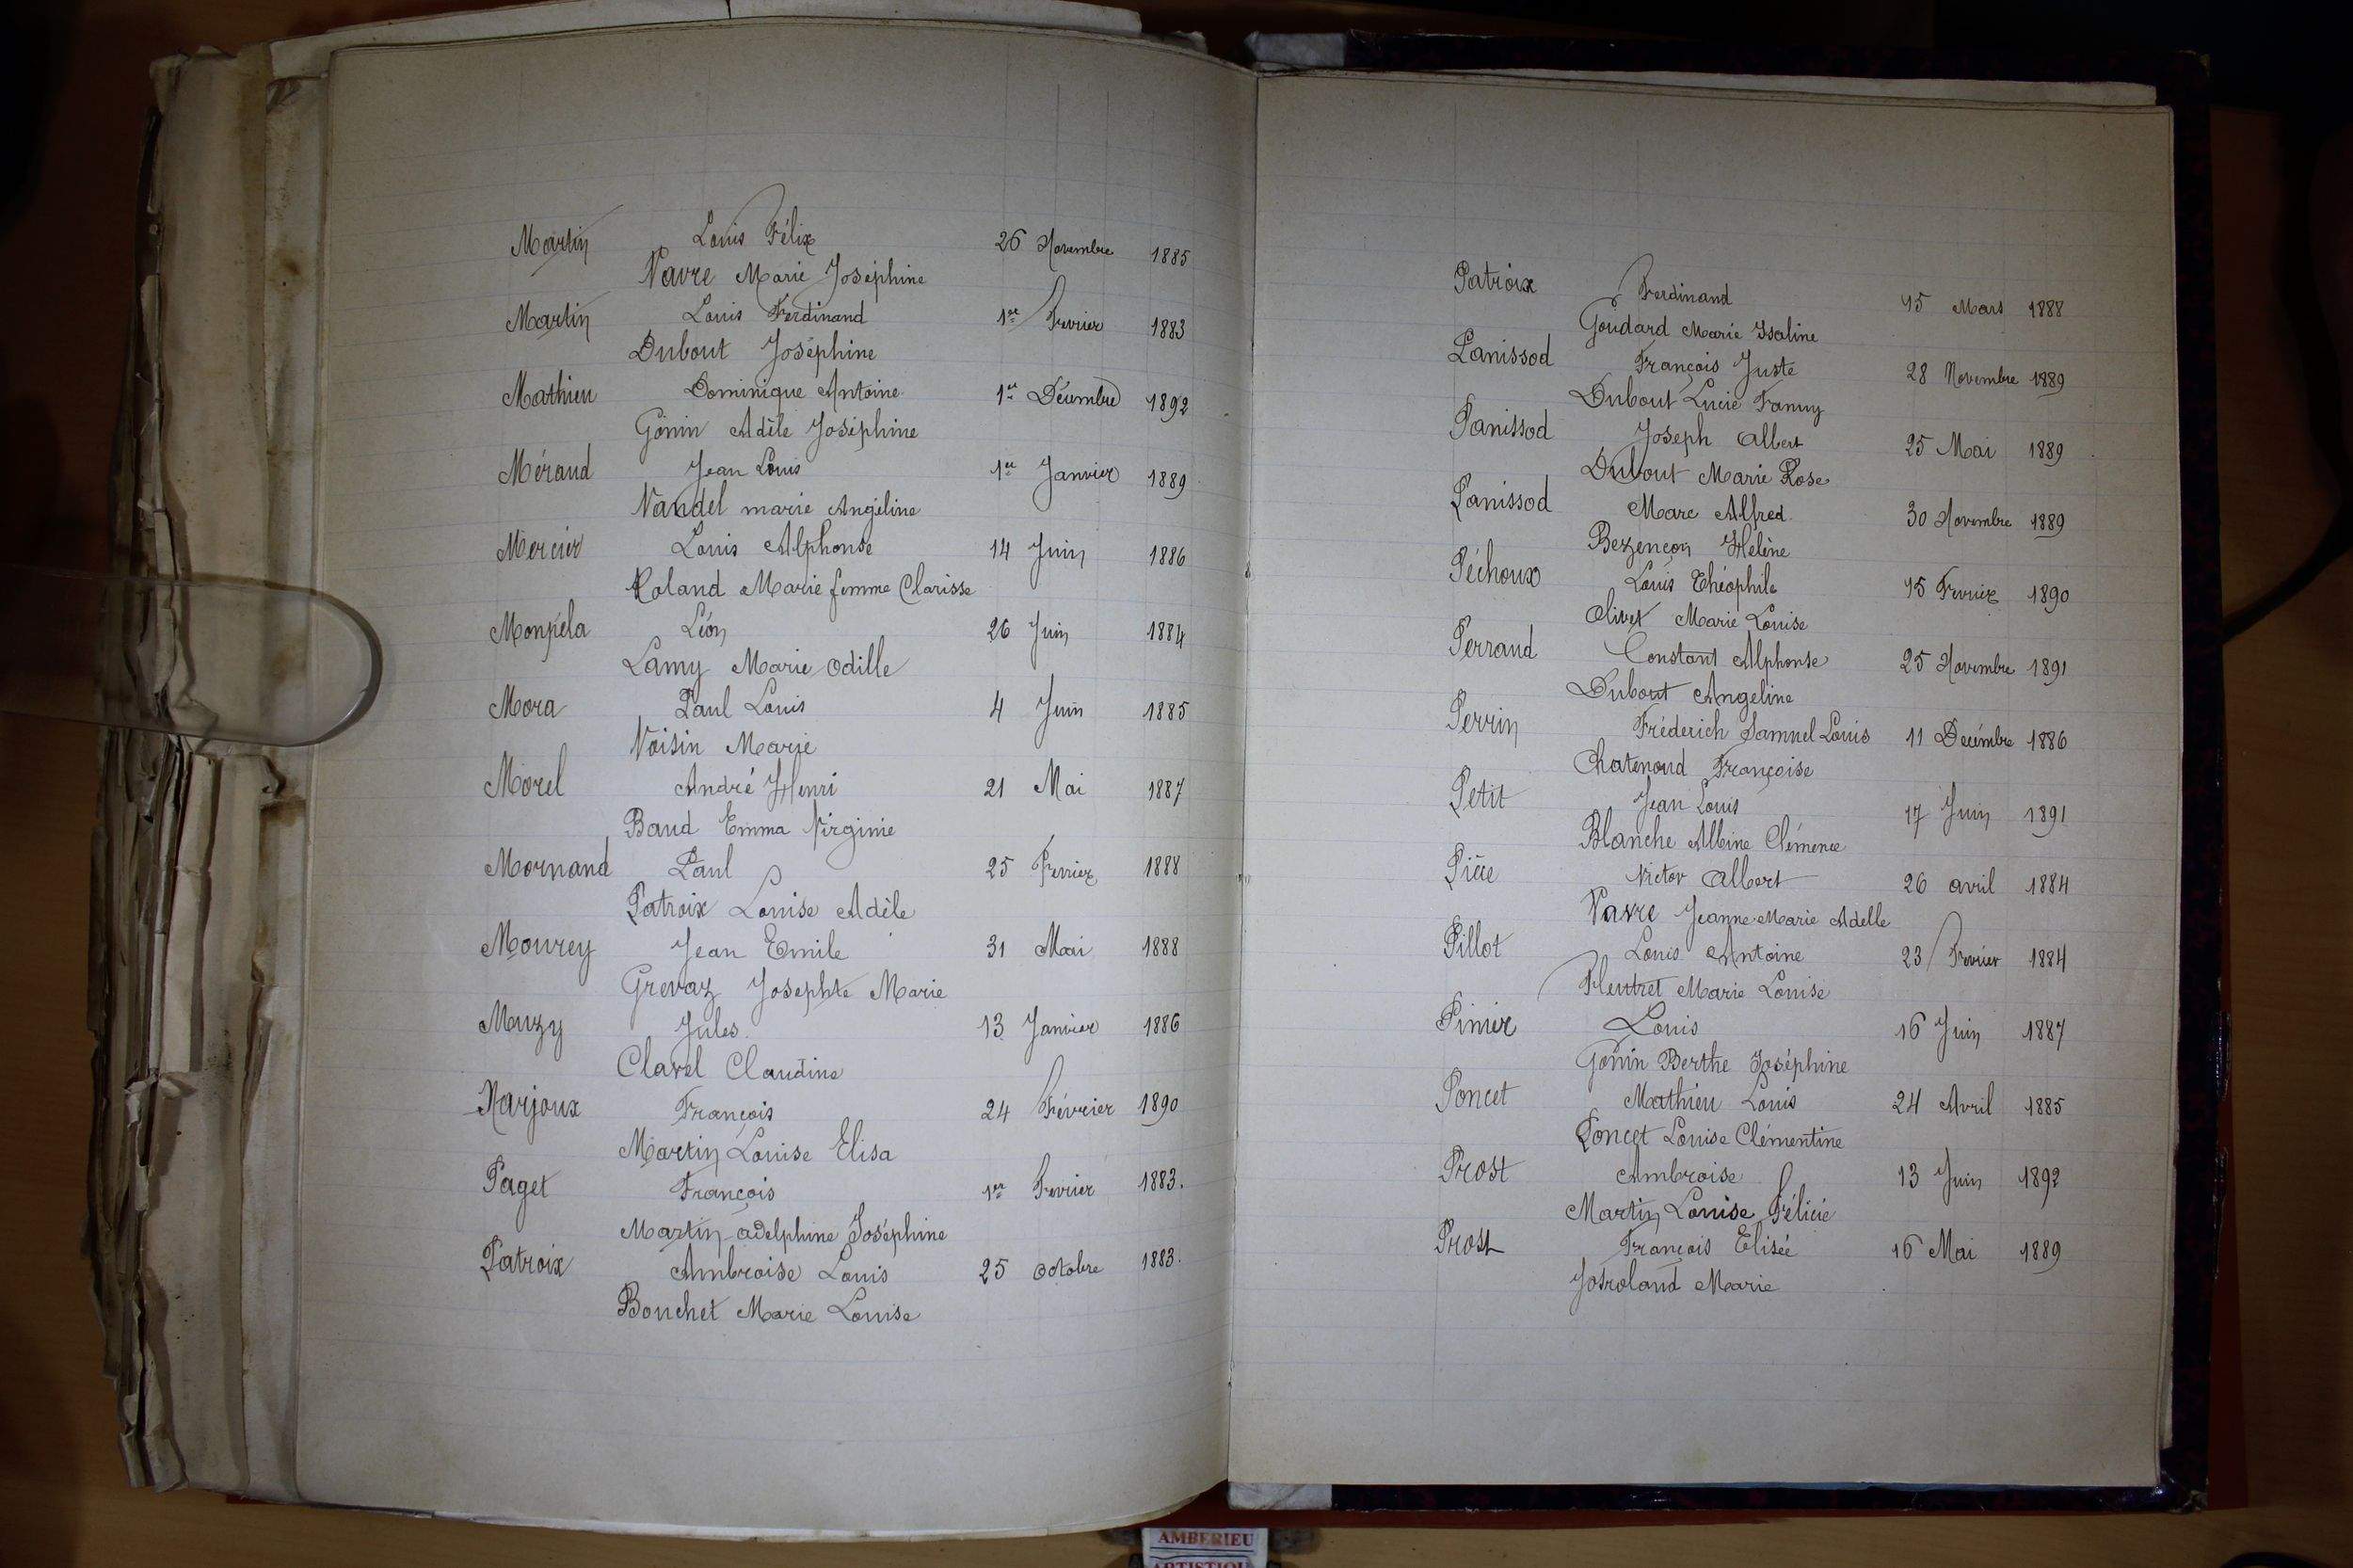 Martin Louis Félix 26 Novembre 1885
Vavre Marie Joséphine
Martin Louis Ferdinand 1er Fevrier 1883
Dubout Joséphine
Mathieu Dominique Antoine 1er Décembre 1892
Gonin Adèle Joséphine
Méraud Jean Louis 1er Janvier 1889
Vandel marie Angéline
Mercier Louis Alphonse 14 Juin 1886
Roland Marie femme Clarisse
Monpéla Léon 26 Juin 1884
Lamy Marie Odille
Mora Paul Louis 4 Juin 1885
Voisin Marie
Morel André Henri 21 Mai 1887
Baud Emma Virginie
Mornand Paul 25 Fevrier 1888
Patroix Louise Adèle
Mourey Jean Emile 31 Mai 1888
Grevaz Josephte Marie
Muzy Jules 13 Janvier 1886
Clavel Claudine
Narjoux François 24 Février 1890
Martin Louise Elisa
Paget François 1er Fevrier 1883.
Martin adelphine Joséphine
Patroix Ambroise Louis 25 Octobre 1883.
Bouchet Marie Louise
Patroix Ferdinand 15 Mars 1888
Goudard Marie Isaline
Panissod François Juste 28 Novembre 1889
Dubout Lucie Fanny
Panissod Joseph Albert 25 Mai 1889
Dubout Marie Rose
Panissod Marc Alfred 30 Novembre 1889
Bezençon Hélène
Péchoux Louis Théophile 15 Fevrier 1890
Olivet Marie Louise
Perraud Constant Alphonse 25 Novembre 1891
Dubout Angeline
Perrin Fréderich Samuel Louis 11 Decémbre 1886
Chatenoud Françoise
Petit Jean Louis 17 Juin 1891
Blanche Albine Clémence
Victor Albert 26 avril 1884
Vavre Jeanne Marie Adelle
Pillot Louis Antoine 23 Fevrier 1884
Fleutret Marie Louise
Pinier Louis 16 Juin 1887
Gonin Berthe Joséphine
Poncet Mathieu Louis 24 Avril 1885
Poncet Louise Clémentine
Prost Ambroise 13 Juin 1892
Martin Louise Félicie
Prost François Elisée 16 Mai 1889
Josroland Marie
AMBERIEU